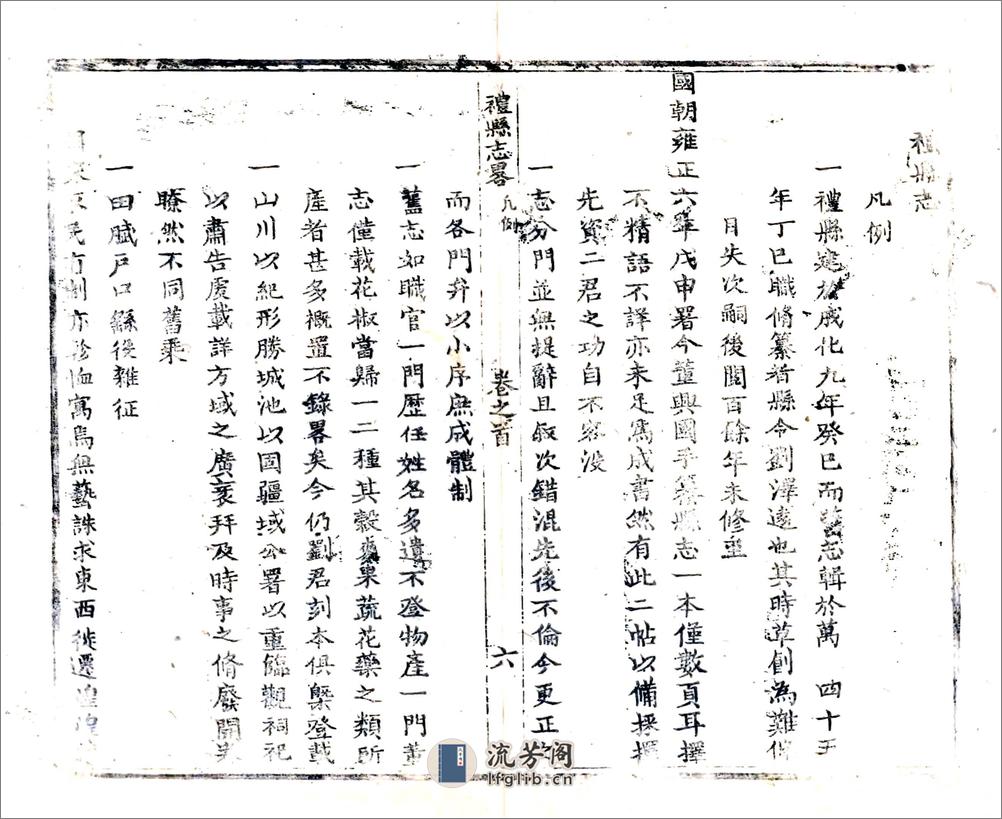 禮縣志
凡例
一禮縣建於成化九年癸巳而舊志輯於萬 四十五
年丁巳職脩纂者縣令劉澤遠也其時草創為難
目失次嗣後閱百餘年未修至
國朝雍正六年戊申署令董興國手纂縣志一本僅數頁耳擇
不精語不詳亦未足為成書然有此二帖以備採擇
先資二君之功自不容沒
一志分門並無提辭且叙次錯混先後不倫今更正
禮縣志畧 凡例 卷之首 六
而各門弁以小序庶成體制
一舊志如職官一門歷任姓名多遺不登物產一門董
志僅載花椒當歸一二種其穀 果蔬花藥之類所
產者甚多概置不錄畧矣今仍劉君刻本俱槩登載
一山川以紀形勝城池以固疆域公署以重臨觀祠祀
以肅告虔載詳方域之廣袤并及時事之脩廢開
瞭然不同舊乘
一田賦戶口繇役雜征
民 亦 恤寓焉無藝誅求東西徙遷
流芳阁
lfglib.cn